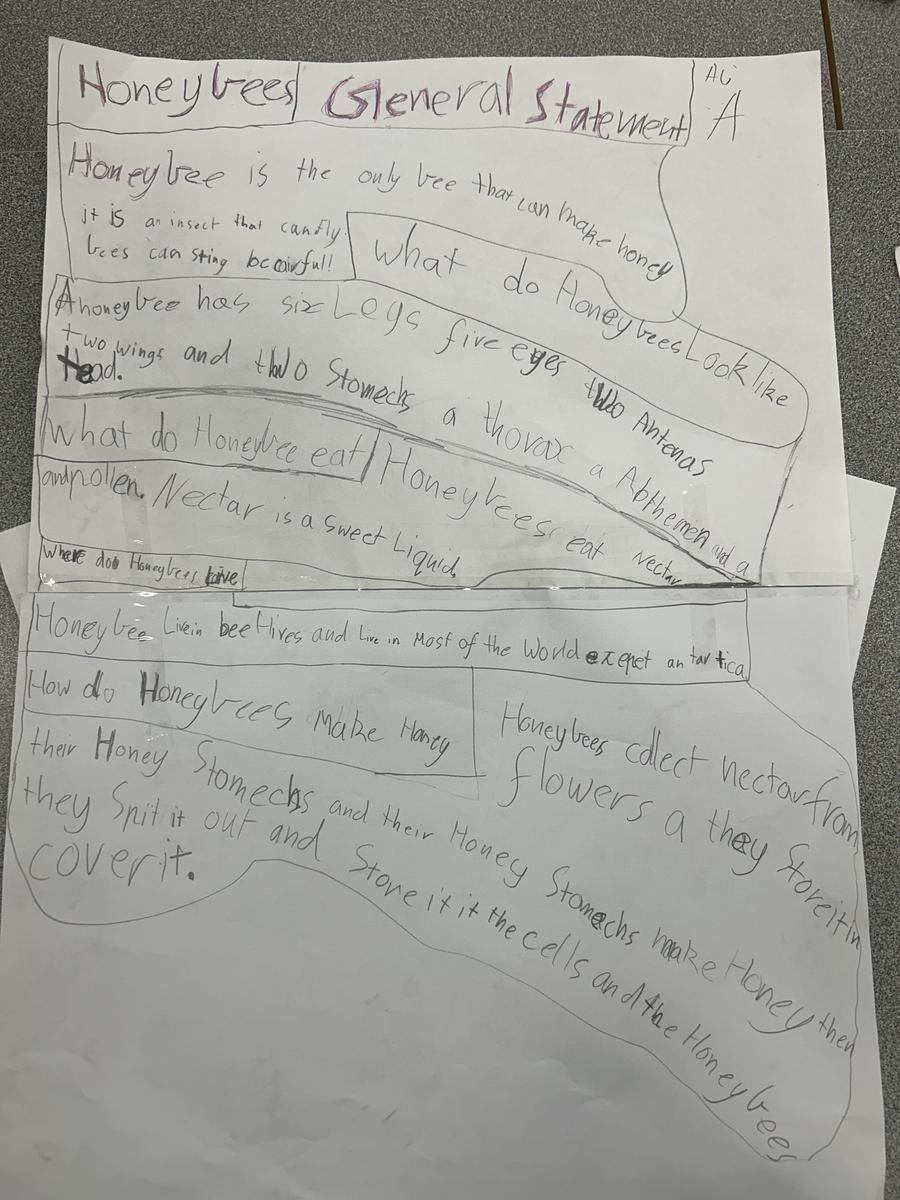 Honeybees General Statement
Ali
A
Honeybee is the only bee that can make honey
it is an insect that can fly
bees can sting be cairful!
What do Honeybees Look like
A honeybee has six Legs five eyes two Antenas
two wings and two Stomechs a thorax a Abthemen and a
Head.
What do Honeybee eat
Honeybees eat Nectar
and pollen. Nectar is a sweet Liquid.
Where doo Honeybees Live
Honeybee Live in bee Hives and Live in Most of the World exepet antartica
How do Honeybees Make Honey
Honeybees collect nectar from
flowers a they Store it in
their Honey Stomechs and their Honey Stomechs make Honey then
they Spit it out and Store it it the cells and the Honeybees
cover it.